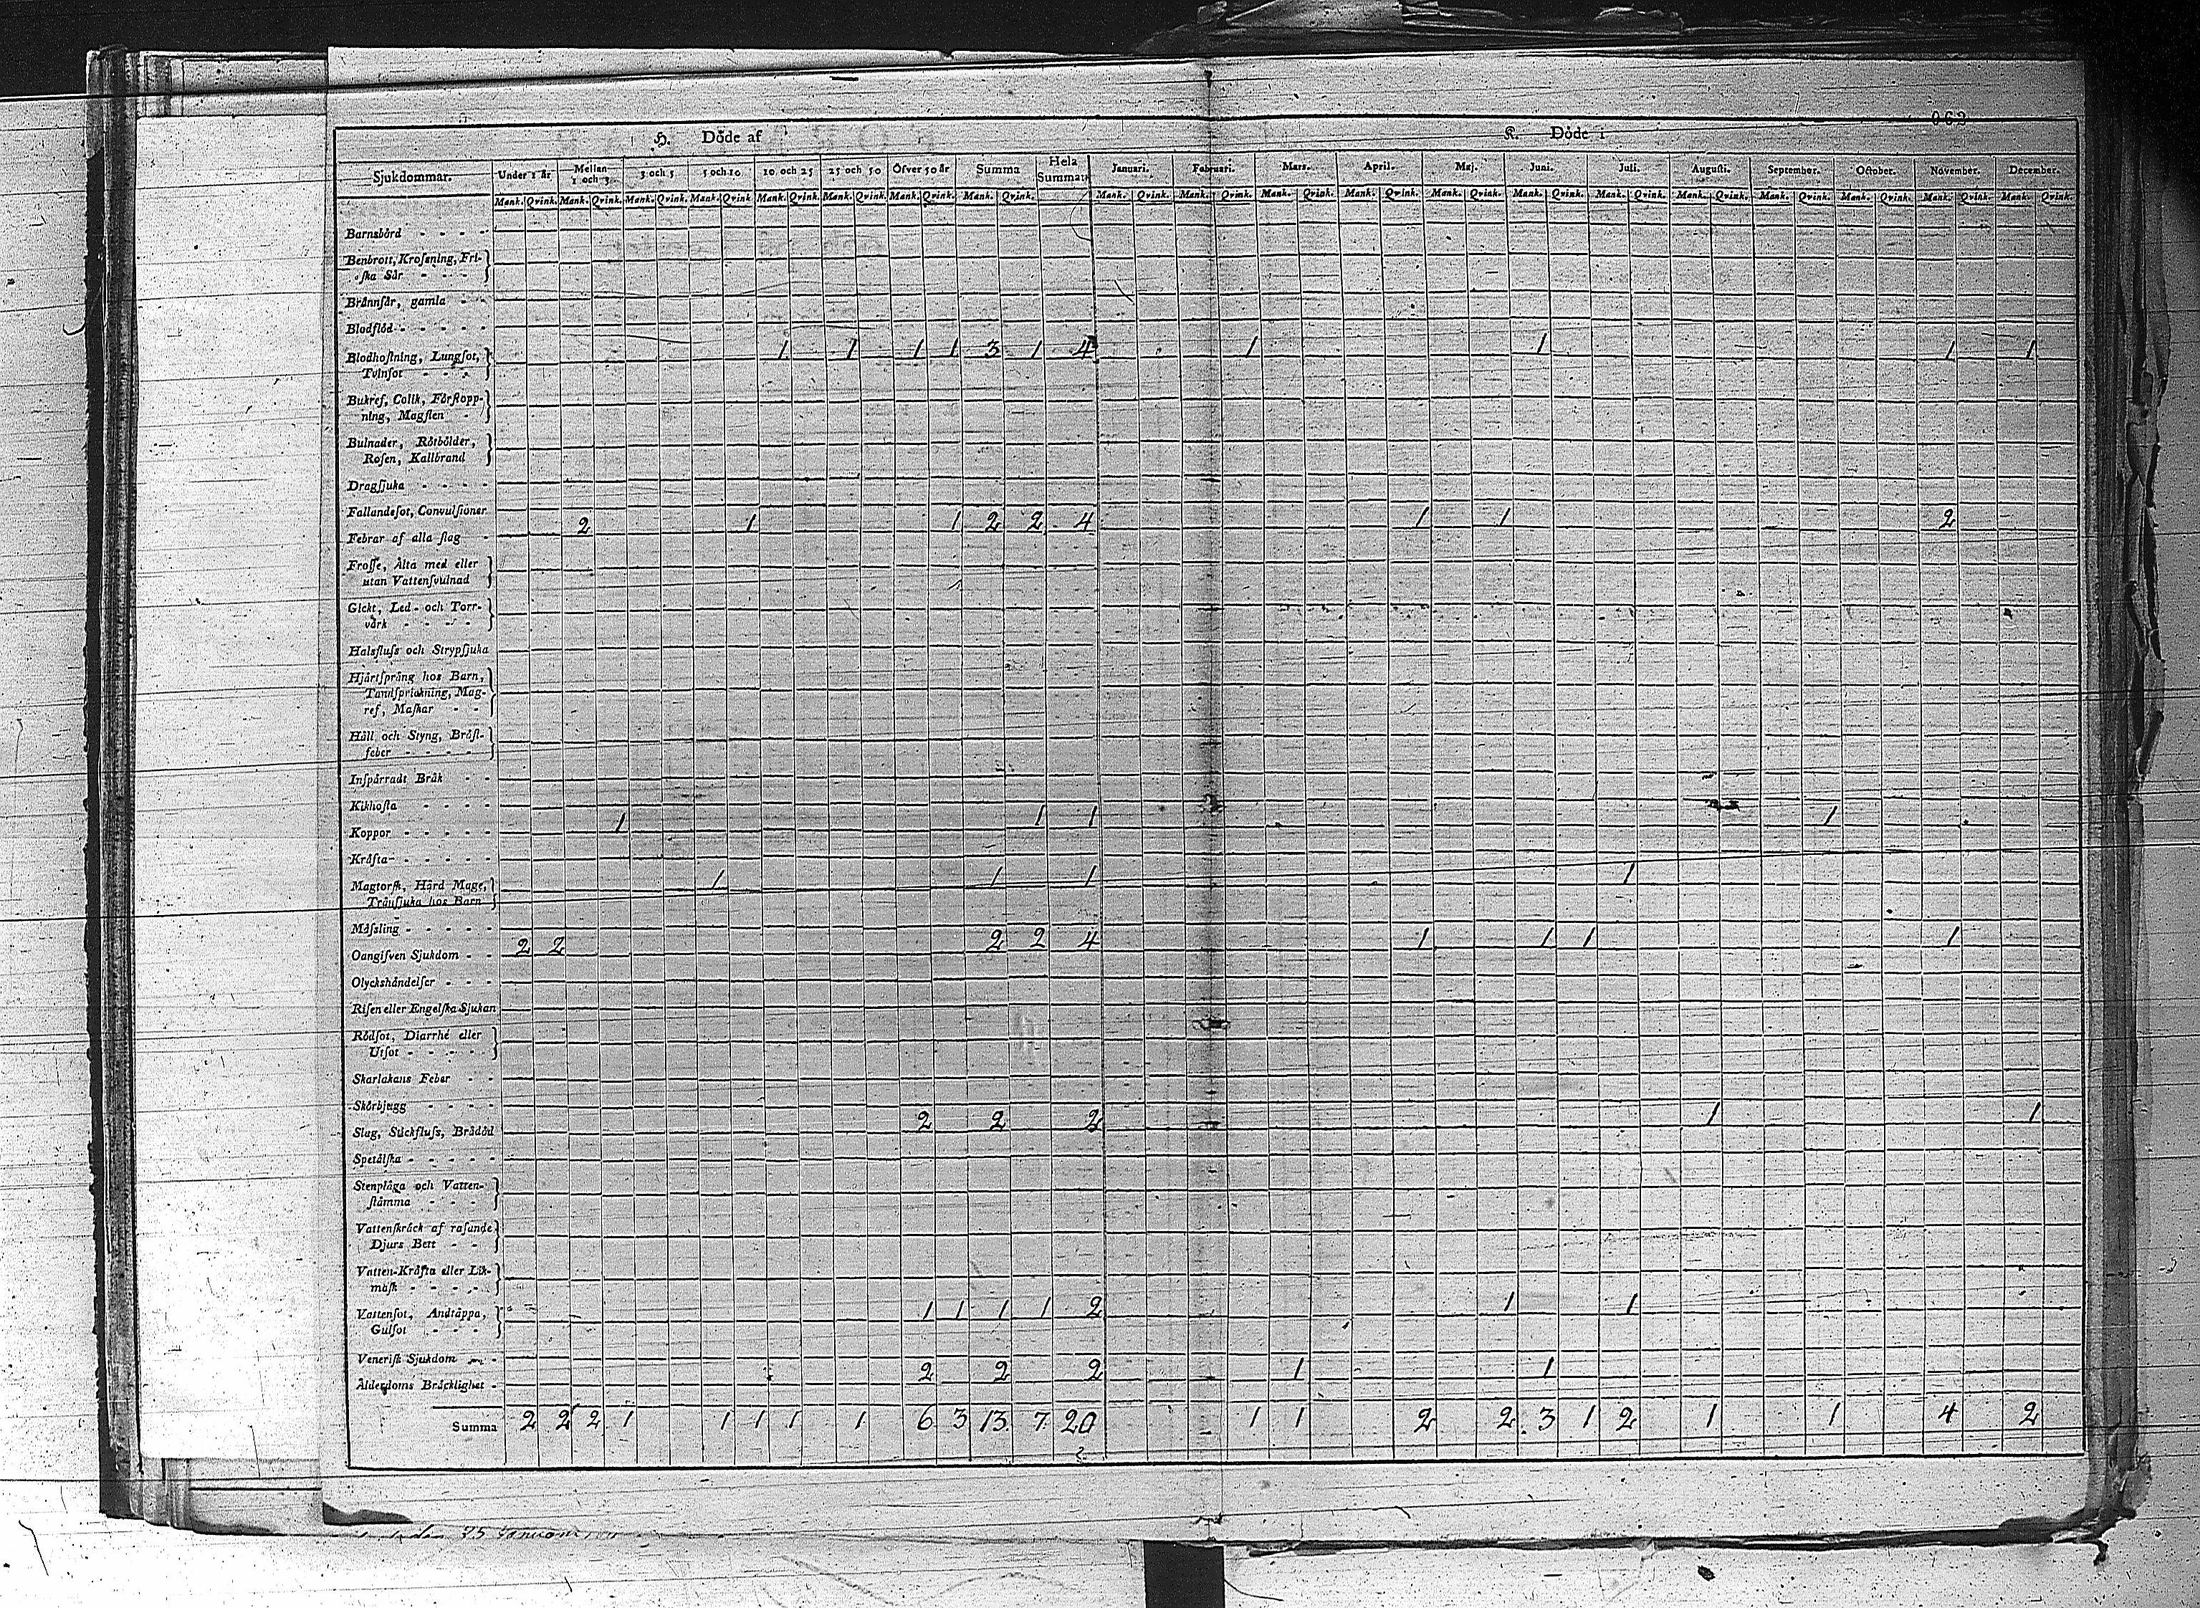 062
H. Döde af K. Döde i
Sjukdommar. Under 1 år Mellan 1 och 3. 3 och 5 5 och 10 10 och 25 25 och 50 Öfver 50 år Summa Hela Summan Januari. Februari. Mars. April. Maj. Juni. Juli. Augusti. September. October. November. December.
Mank. Qvink. Mank. Qvink. Mank. Qvink. Mank. Qvink. Mank. Qvink. Mank. Qvink. Mank. Qvink. Mank. Qvink. Mank. Qvink. Mank. Qvink. Mank. Qvink. Mank. Qvink. Mank. Qvink. Mank. Qvink. Mank. Qvink. Mank. Qvink. Mank. Qvink. Mank. Qvink. Mank. Qvink. Mank. Qvink.
Barnsbörd - - - -
Benbrott, Krossning, Fri-
ska Sår - - -
Brännsår, gamla - -
Blodflöd - - - - -
Blodhostning, Lungsot, 1 1 1 1 3 1 4 1 1 1 1
Tvinsot - - -
Bukref, Colik, Förstopp-
ning, Magsten -
Bulnader, Rötbölder,
Rosen, Kallbrand
Dragsjuka - - - -
Fallandesot, Convulsioner
Febrar af alla slag - 2 1 1 2 2 4 1 1 2
Frossa, Älta med eller
utan Vattensvulnad
Gickt, Led- och Torr-
värk - - - -
Halsfluss och Strypsjuka
Hjärtsprång hos Barn,
Tandsprickning, Mag-
ref, Maskar - -
Håll och Styng, Bröst-
feber - - - -
Inspärradt Bråk - -
Kikhosta - - - -
Koppor - - - - - 1 1 1 1
Kräfta - - - - -
Magtorsk, Hård Mage, 1 1 1 1
Tränsjuka hos Barn
Mässling - - - - -
Oangifven Sjukdom - - 2 2 2 2 4 1 1 1 1
Olyckshändelser - - -
Risen eller Engelska Sjukan
Rödsot, Diarrhé eller
Utsot - - - - -
Skarlakans Feber - -
Skörbjugg - - - -
Slag, Stickfluss, Brådöd 2 2 2 1 1
Spetälska - - - - -
Stenplåga och Vatten-
stämma - - -
Vattenskräck af rasande
Djurs Bett - -
Vatten-Kräfta eller Lik-
mask - - - - -
Vattensot, Andtäppa, 1 1 1 1 2 1 1
Gulsot - - -
Venerisk Sjukdom - -
Ålderdoms Bräcklighet - 2 2 2 1 1
Summa 2 2 2 1 1 1 1 1 6 3 13 7 20 1 1 2 2 3 1 2 1 1 4 2
25 Januari